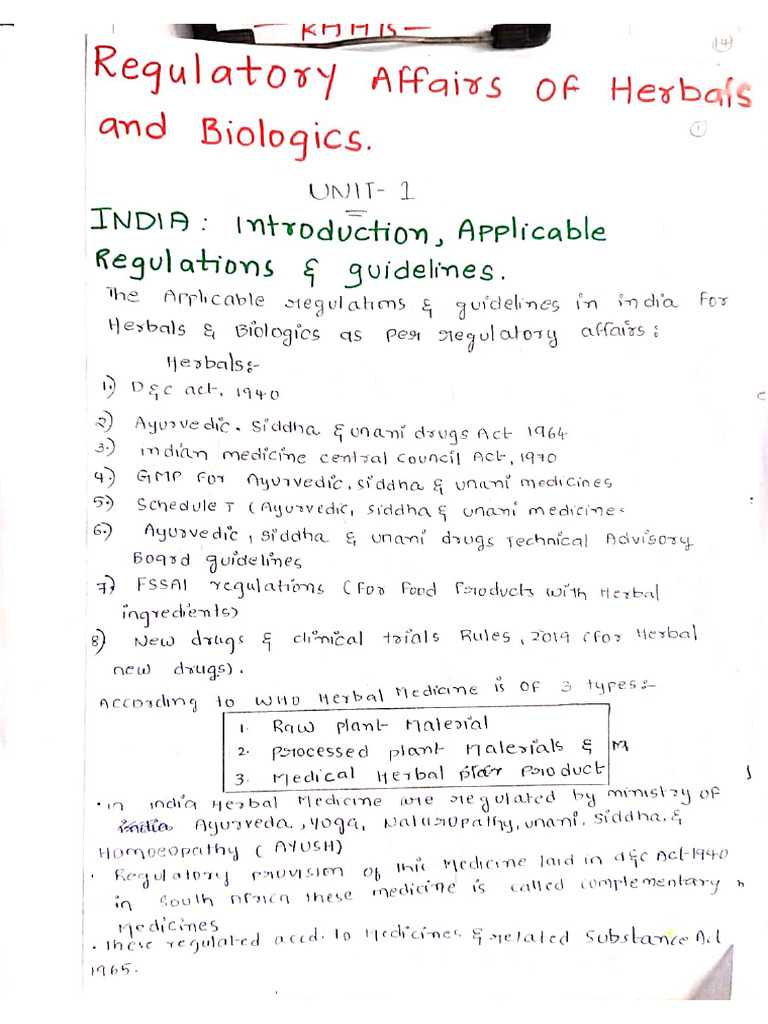 14
Regulatory Affairs of Herbals
and Biologics.
1
UNIT- 1
INDIA: Introduction, Applicable
Regulations & guidelines.
The Applicable regulations & guidelines in india For
Herbals & Biologics as per regulatory affairs:
Herbals:-
1.) D&C act, 1940
2) Ayurvedic, Siddha & unani drugs Act 1964
3.) indian medicine central council Act, 1970
4.) GMP For Ayurvedic, siddha & unani medicines
5.) Schedule T (Ayurvedic, siddha & unani medicine.
6.) Ayurvedic, siddha & unani drugs Technical Advisory
Board guidelines
7.) FSSAI regulations (For Food Products with Herbal
ingredients)
8) New drugs & clinical trials Rules, 2019 (for Herbal
new drugs).
According to WHO Herbal Medicine is of 3 types:-
1. Raw plant Material
2. Processed plant Materials & M
3. Medical Herbal Product
• in india Herbal Medicine are regulated by ministry of
india Ayurveda, Yoga, Naturopathy, unani, siddha, &
Homoeopathy (AYUSH)
• Regulatory provision of this Medicine laid in d&c Act-1940
in South Africa these medicine is called complementary
Medicines
• These regulated accd. to Medicines & related Substance Act
1965.